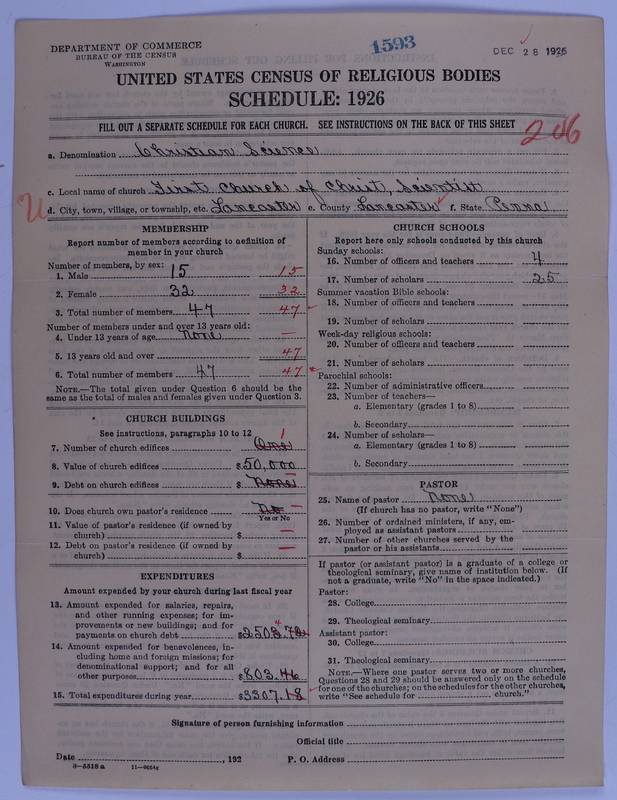 DEPARTMENT OF COMMERCE
BUREAU OF THE CENSUS
WASHINGTON
1593
DEC 28 1926
UNITED STATES CENSUS OF RELIGIOUS BODIES
SCHEDULE: 1926
FILL OUT A SEPARATE SCHEDULE FOR EACH CHURCH. SEE INSTRUCTIONS ON THE BACK OF THIS SHEET
206
a. Denomination Christian Science
c. Local name of church First Church of Christ, Scientist
U
d. City, town, village, or township, etc. Lancaster e. County Lancaster f. State Penna
MEMBERSHIP
Report number of members according to definition of
member in your church
Number of members, by sex:
1. Male 15 15
2. Female 32 32
3. Total number of members 47 47
Number of members under and over 13 years old:
4. Under 13 years of age None —
5. 13 years old and over 47
6. Total number of members 47 47
NOTE.—The total given under Question 6 should be the
same as the total of males and females given under Question 3.
CHURCH BUILDINGS
See instructions, paragraphs 10 to 12
7. Number of church edifices One 1
8. Value of church edifices $50,000
9. Debt on church edifices $ None —
10. Does church own pastor's residence No —
Yes or No
11. Value of pastor's residence (if owned by
church) $ —
12. Debt on pastor's residence (if owned by
church) $ —
EXPENDITURES
Amount expended by your church during last fiscal year
13. Amount expended for salaries, repairs,
and other running expenses; for im-
provements or new buildings; and for
payments on church debt $2503.72 4
14. Amount expended for benevolences, in-
cluding home and foreign missions; for
denominational support; and for all
other purposes $803.46
15. Total expenditures during year $3307.18
CHURCH SCHOOLS
Report here only schools conducted by this church
Sunday schools:
16. Number of officers and teachers 4
17. Number of scholars 25
Summer vacation Bible schools:
18. Number of officers and teachers
19. Number of scholars
Week-day religious schools:
20. Number of officers and teachers
21. Number of scholars
Parochial schools:
22. Number of administrative officers
23. Number of teachers—
a. Elementary (grades 1 to 8)
b. Secondary
24. Number of scholars—
a. Elementary (grades 1 to 8)
b. Secondary
PASTOR
25. Name of pastor None
(If church has no pastor, write "None")
26. Number of ordained ministers, if any, em-
ployed as assistant pastors
27. Number of other churches served by the
pastor or his assistants
If pastor (or assistant pastor) is a graduate of a college or
theological seminary, give name of institution below. (If
not a graduate, write "No" in the space indicated.)
Pastor:
28. College
29. Theological seminary
Assistant pastor:
30. College
31. Theological seminary
NOTE.—Where one pastor serves two or more churches,
Questions 28 and 29 should be answered only on the schedule
for one of the churches; on the schedules for the other churches,
write "See schedule for church."
Signature of person furnishing information
Official title
Date , 192 P. O. Address
8—5318 a